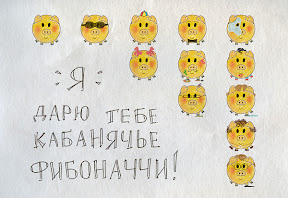 "Я"
ДАРЮ ТЕБЕ
КАБАНЯЧЬЕ
ФИБОНАЧЧИ!